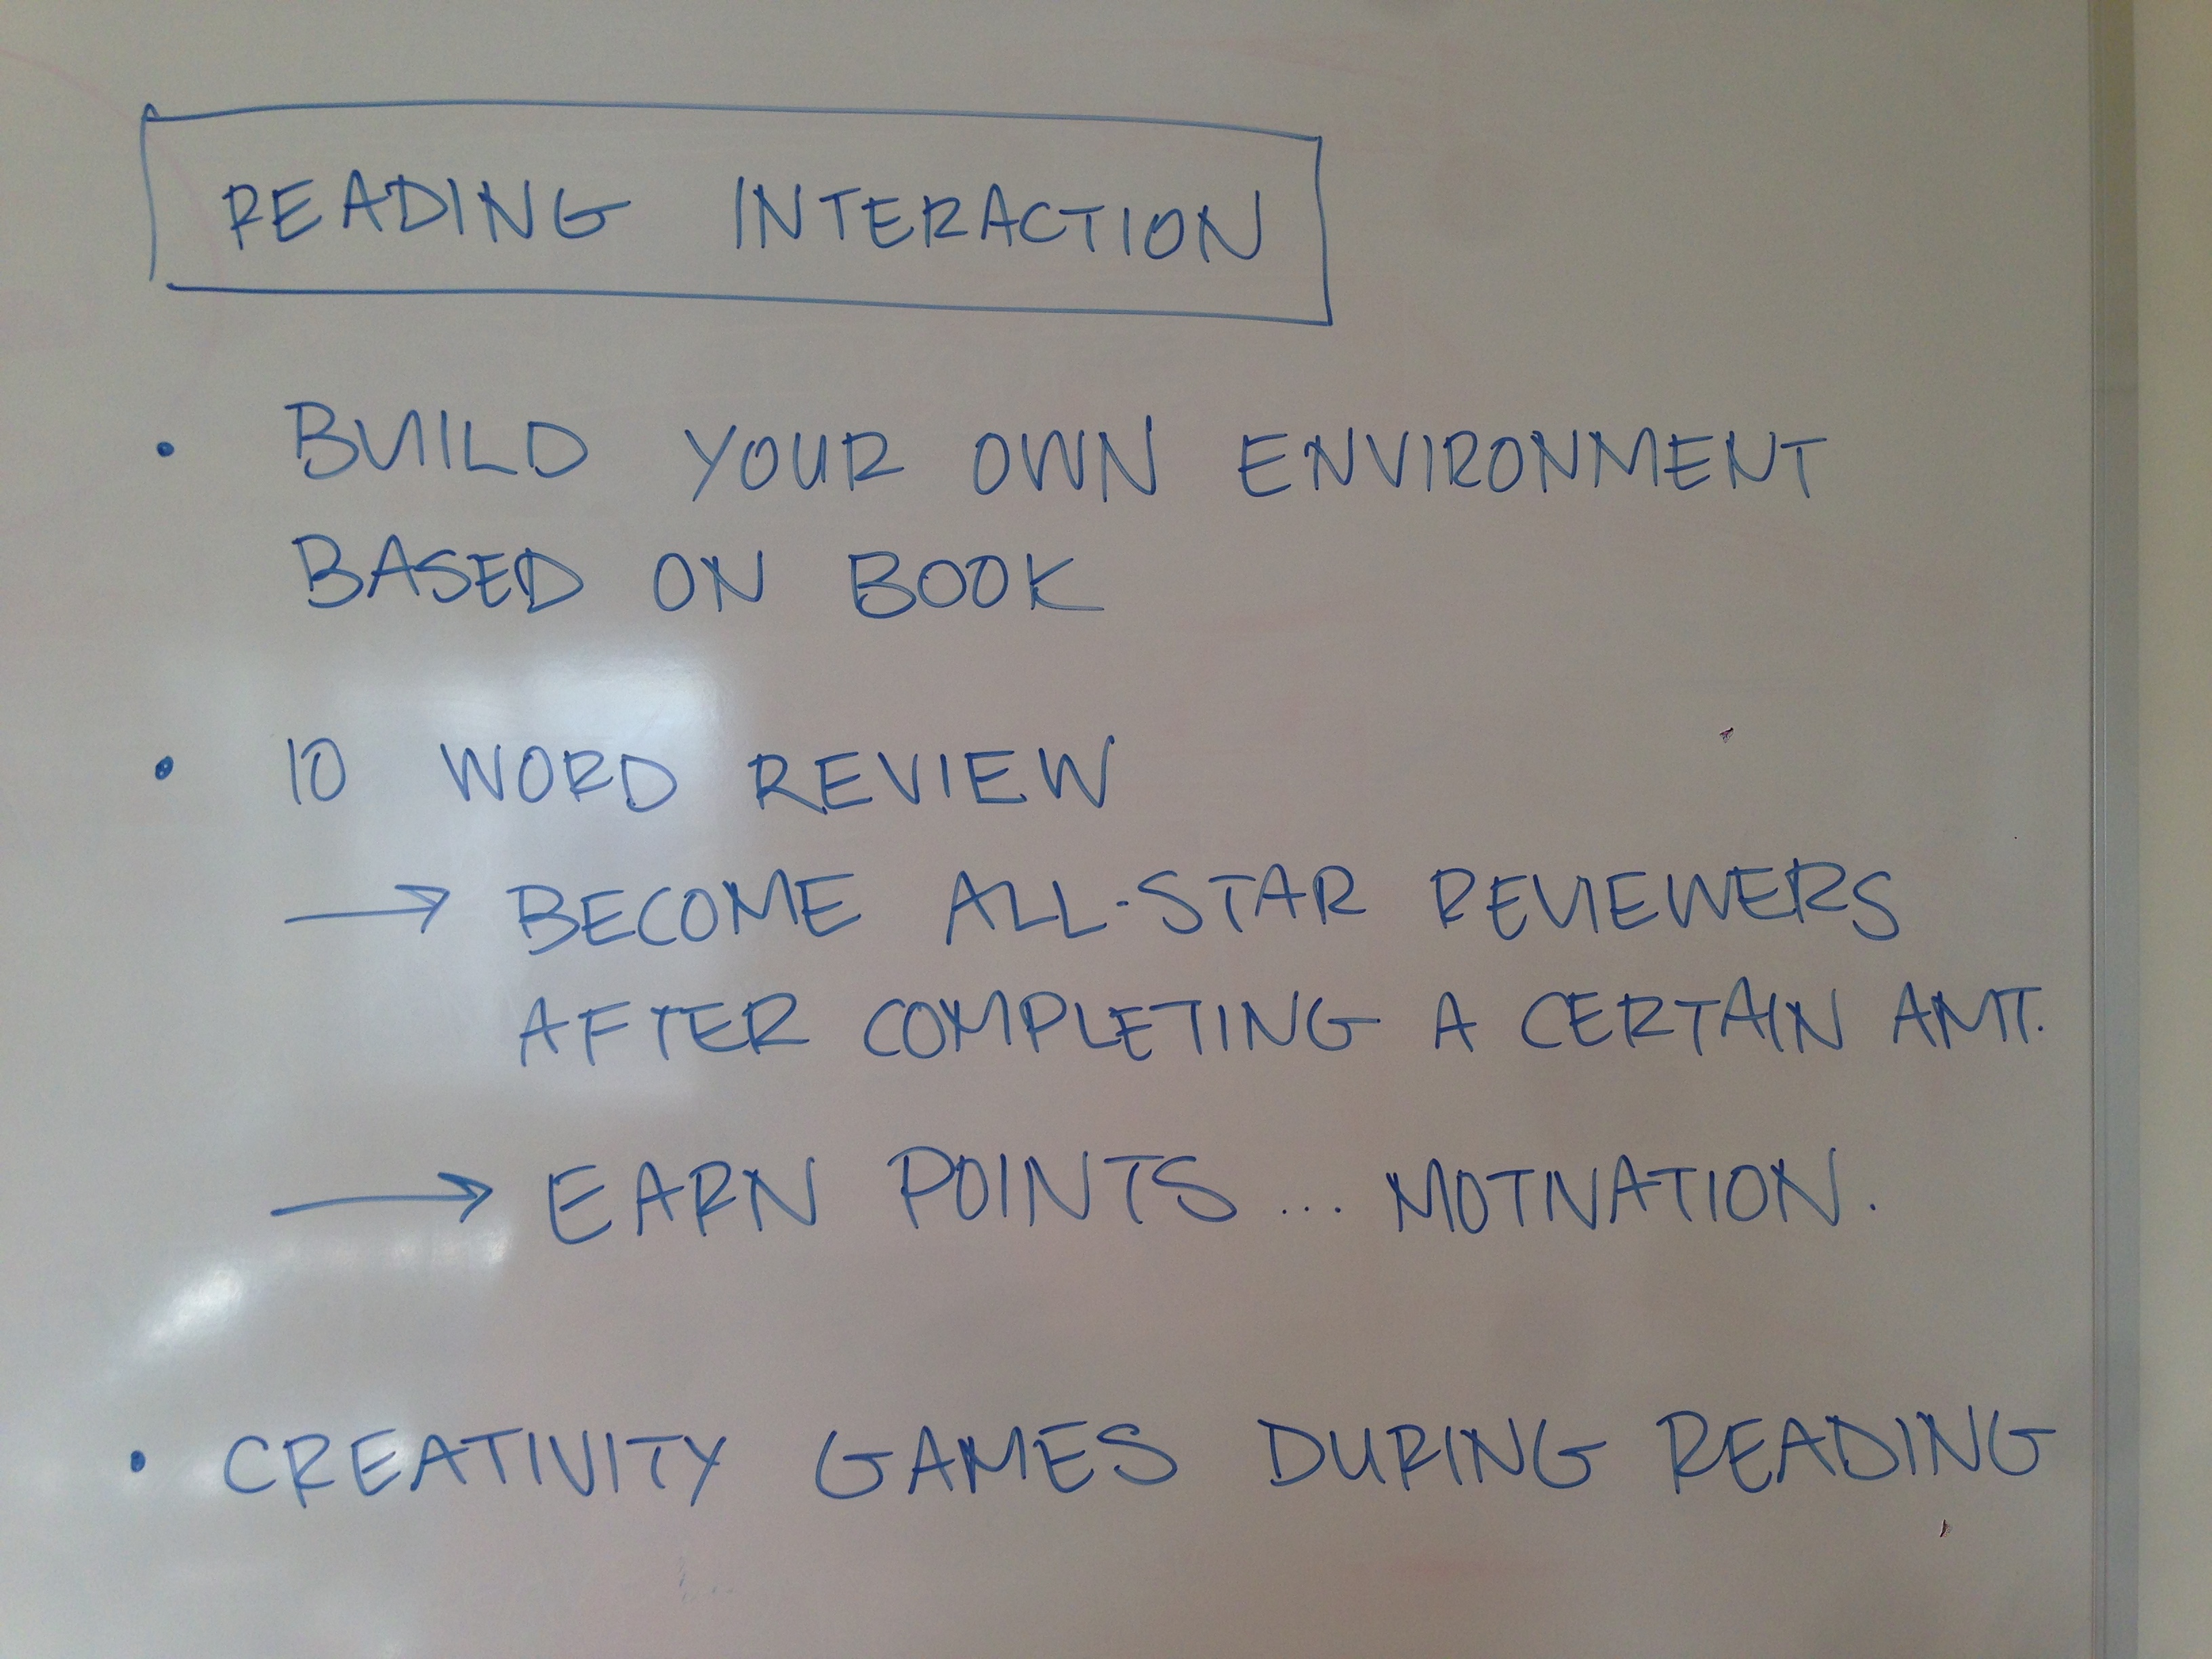 READING INTERACTION
• BUILD YOUR OWN ENVIRONMENT
BASED ON BOOK
• 10 WORD REVIEW
→ BECOME ALL-STAR REVIEWERS
AFTER COMPLETING A CERTAIN AMT.
→ EARN POINTS ... MOTIVATION.
• CREATIVITY GAMES DURING READING